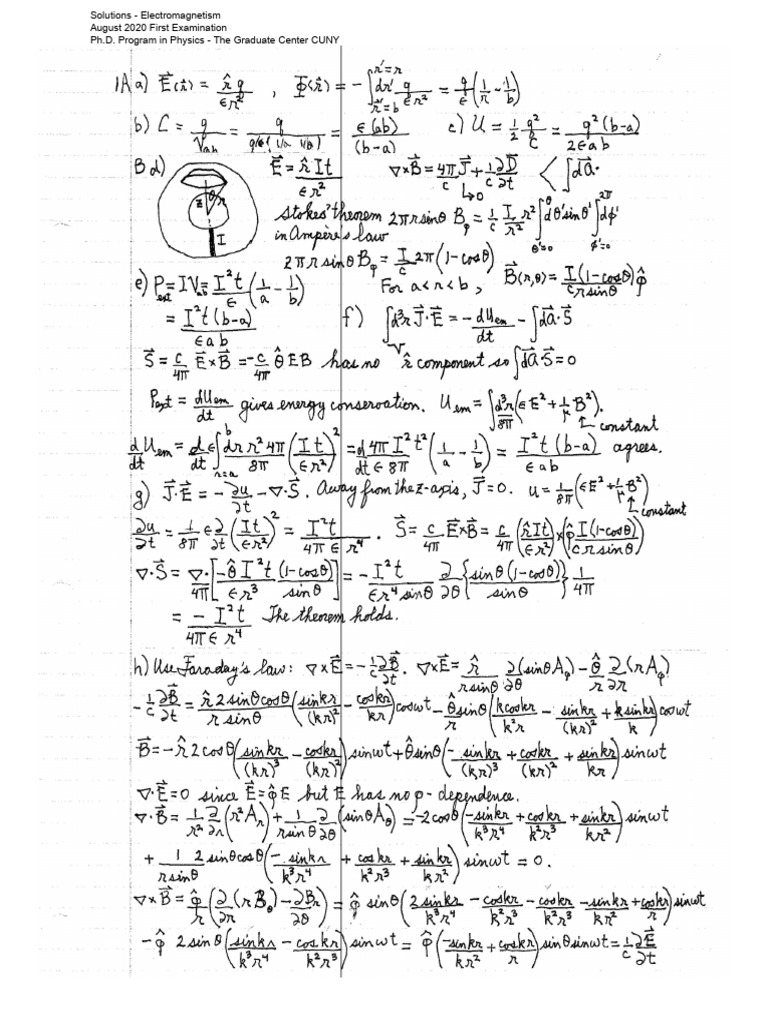 Solutions - Electromagnetism
August 2020 First Examination
Ph.D. Program in Physics - The Graduate Center CUNY
1A a) E⃗(r⃗) = r̂q/εr², Φ(r⃗) = -∫_{r'=b}^{r'=r} dr' q/εr² = q/ε(1/r - 1/b)
b) C = q/V_ab = q/(q/ε(1/a - 1/b)) = ε(ab)/(b-a) c) U = 1/2 q²/C = q²(b-a)/2εab
B d) E⃗ = r̂It/εr² ∇×B⃗ = 4π/c J⃗ + 1/c ∂D⃗/∂t <∫da⃗·
↳0
z θ r I
Stokes' theorem 2πr sinθ B_φ = 1/c I/r² r² ∫_{θ'=0}^{θ} dθ' sinθ' ∫_{φ'=0}^{2π} dφ'
in Ampère's law
2πr sinθ B_φ = I/c 2π(1-cosθ)
For a<r<b, B⃗(r,θ) = I(1-cosθ)/(c r sinθ) φ̂
e) P_ext = IV_ab = I²t/ε (1/a - 1/b)
= I²t(b-a)/εab f) ∫_V d³r J⃗·E⃗ = -dU_em/dt - ∫da⃗·S⃗
S⃗ = c/4π E⃗×B⃗ = -c/4π θ̂EB has no r̂ component so ∫da⃗·S⃗ = 0
P_ext = dU_em/dt gives energy conservation. U_em = ∫d³r/8π (εE² + 1/μ B²).
↑ constant
d/dt U_em = d/dt ε∫_{r=a}^{b} dr r² 4π/8π (It/εr²)² = d/dt 4πI²t²/ε8π (1/a - 1/b) = I²t(b-a)/εab agrees.
g) J⃗·E⃗ = -∂u/∂t - ∇·S⃗. Away from the z-axis, J⃗=0. u = 1/8π (εE² + 1/μ B²)
↑ constant
∂u/∂t = 1/8π ε ∂/∂t (It/εr²)² = I²t/4πεr⁴. S⃗ = c/4π E⃗×B⃗ = c/4π (r̂It/εr²)×(φ̂ I(1-cosθ)/(c r sinθ))
∇·S⃗ = ∇/4π·[-θ̂I²t(1-cosθ)/(εr³ sinθ)] = -I²t/(εr⁴ sinθ) ∂/∂θ {sinθ(1-cosθ)/sinθ} 1/4π
= -I²t/4πεr⁴ The theorem holds.
h) Use Faraday's law: ∇×E⃗ = -1/c ∂B⃗/∂t. ∇×E⃗ = r̂/(r sinθ) ∂/∂θ (sinθA_φ) - θ̂/r ∂/∂r (rA_φ)
-1/c ∂B⃗/∂t = r̂2sinθcosθ/(r sinθ) (sinkr/(kr)² - coskr/kr) cosωt - θ̂sinθ/r (kcoskr/k²r - sinkr/(kr)² + ksinkr/k) cosωt
B⃗ = -r̂2cosθ(sinkr/(kr)³ - coskr/(kr)²) sinωt + θ̂sinθ(-sinkr/(kr)³ + coskr/(kr)² + sinkr/kr) sinωt
∇·E⃗=0 since E⃗=φ̂E but E has no φ-dependence.
∇·B⃗ = 1/r² ∂/∂r (r²A_r) + 1/(r sinθ) ∂/∂θ (sinθA_θ) = -2cosθ(-sinkr/k³r⁴ + coskr/k²r³ + sinkr/kr²) sinωt
+ 1/(r sinθ) 2sinθcosθ(-sinkr/k³r⁴ + coskr/k²r³ + sinkr/kr²) sinωt = 0.
∇×B⃗ = φ̂/r (∂/∂r (rB_θ) - ∂B_r/∂θ) = φ̂ sinθ(2sinkr/k³r⁴ - coskr/k²r³ - coskr/k²r³ - sinkr/kr² + coskr/r) sinωt
-φ̂ 2sinθ(sinkr/k³r⁴ - coskr/k²r³) sinωt = φ̂(-sinkr/kr² + coskr/r) sinθ sinωt = 1/c ∂E⃗/∂t